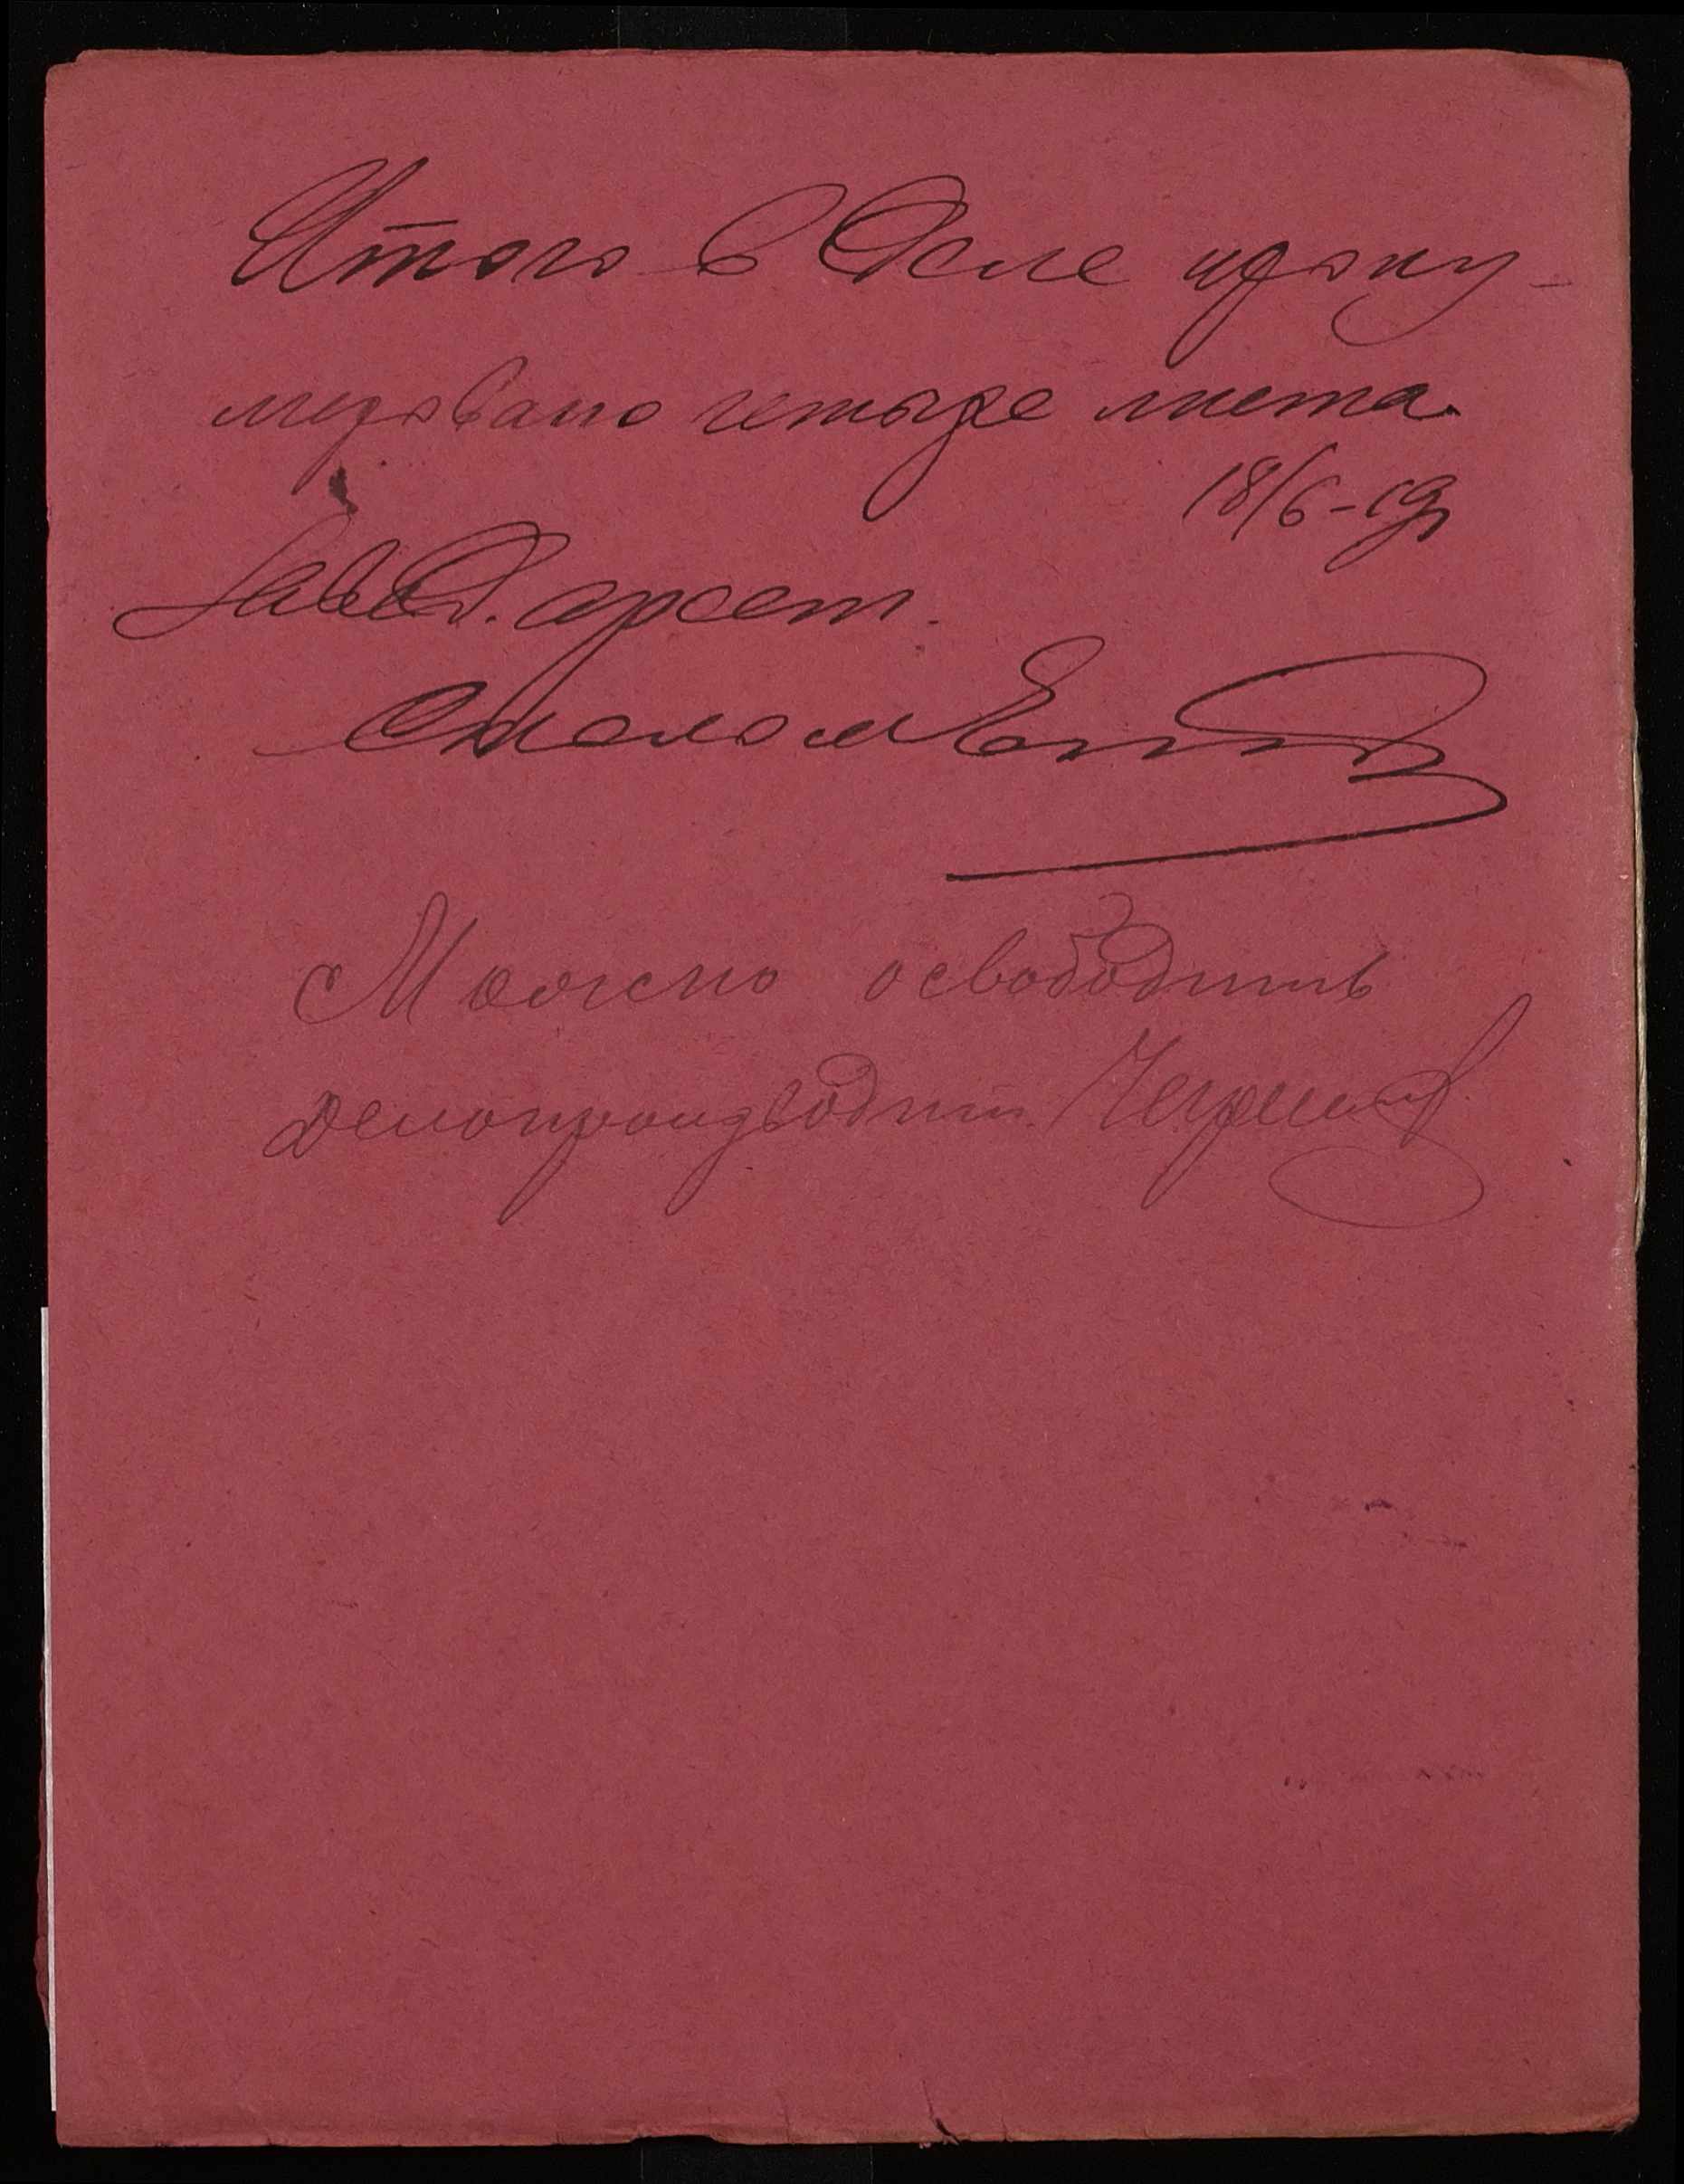 Итого в деле прону-
меровано четыре листа.
18/6-19г
Завед. арест.
столом
Можно освободить
Делопроизводит.